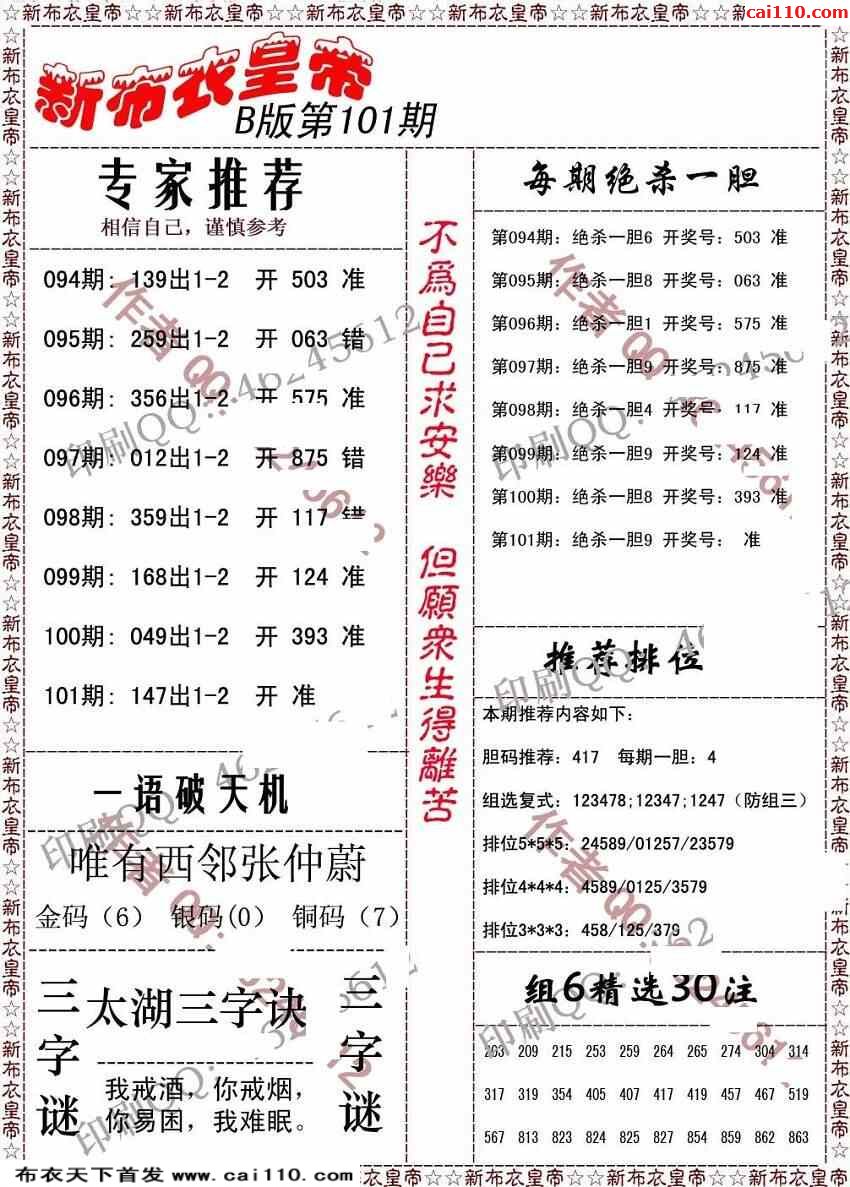 ☆新布衣皇帝☆☆新布衣皇帝☆☆新布衣皇帝☆☆新布衣皇帝☆☆新布衣皇帝☆
cai110.com
新布衣皇帝
B版第101期
专家推荐
相信自己，谨慎参考
094期: 139出1-2 开 503 准
095期: 259出1-2 开 063 错
096期: 356出1-2 开 575 准
097期: 012出1-2 开 875 错
098期: 359出1-2 开 117 错
099期: 168出1-2 开 124 准
100期: 049出1-2 开 393 准
101期: 147出1-2 开 准
一语破天机
唯有西邻张仲蔚
金码（6） 银码(0) 铜码（7）
三字谜
太湖三字诀
我戒酒，你戒烟，
你易困，我难眠。
三字谜
不爲自己求安樂 但願衆生得離苦
每期绝杀一胆
第094期: 绝杀一胆6 开奖号: 503 准
第095期: 绝杀一胆8 开奖号: 063 准
第096期: 绝杀一胆1 开奖号: 575 准
第097期: 绝杀一胆9 开奖号: 875 准
第098期: 绝杀一胆4 开奖号: 117 准
第099期: 绝杀一胆9 开奖号: 124 准
第100期: 绝杀一胆8 开奖号: 393 准
第101期: 绝杀一胆9 开奖号: 准
推荐排位
本期推荐内容如下:
胆码推荐: 417 每期一胆: 4
组选复式: 123478;12347;1247（防组三）
排位5*5*5: 24589/01257/23579
排位4*4*4: 4589/0125/3579
排位3*3*3: 458/125/379
组6精选30注
203 209 215 253 259 264 265 274 304 314
317 319 354 405 407 417 419 457 467 519
567 813 823 824 827 854 859 862 863
布衣天下首发 www.cai110.com
衣皇帝☆☆新布衣皇帝☆☆新布衣皇帝☆☆新布衣皇帝☆
作者QQ:
印刷QQ: 46245612